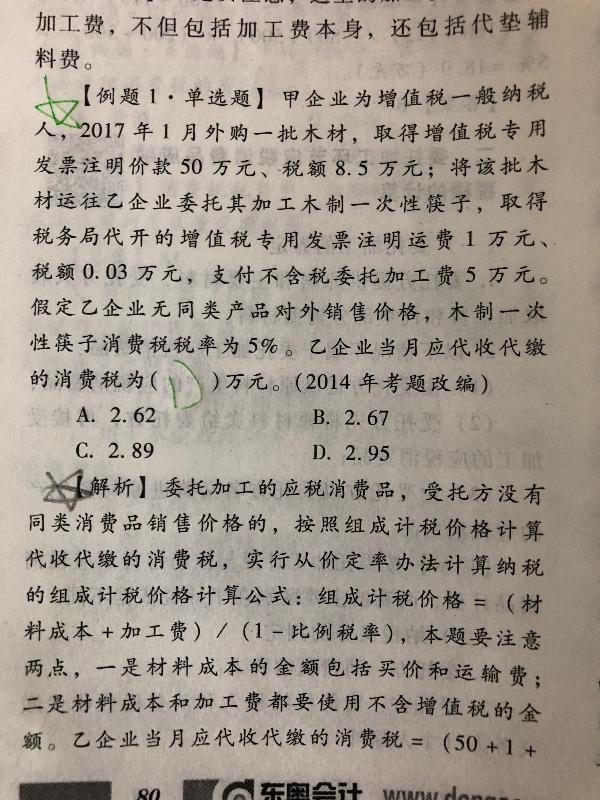 加工费，不但包括加工费本身，还包括代垫辅
料费。
【例题1·单选题】甲企业为增值税一般纳税
人，2017年1月外购一批木材，取得增值税专用
发票注明价款50万元、税额8.5万元；将该批木
材运往乙企业委托其加工木制一次性筷子，取得
税务局代开的增值税专用发票注明运费1万元、
税额0.03万元，支付不含税委托加工费5万元。
假定乙企业无同类产品对外销售价格，木制一次
性筷子消费税税率为5%。乙企业当月应代收代缴
的消费税为( D )万元。(2014年考题改编)
A. 2.62 B. 2.67
C. 2.89 D. 2.95
【解析】委托加工的应税消费品，受托方没有
同类消费品销售价格的，按照组成计税价格计算
代收代缴的消费税，实行从价定率办法计算纳税
的组成计税价格计算公式：组成计税价格=(材
料成本+加工费)/(1-比例税率)，本题要注意
两点，一是材料成本的金额包括买价和运输费；
二是材料成本和加工费都要使用不含增值税的金
额。乙企业当月应代收代缴的消费税=(50+1+
80 东奥会计